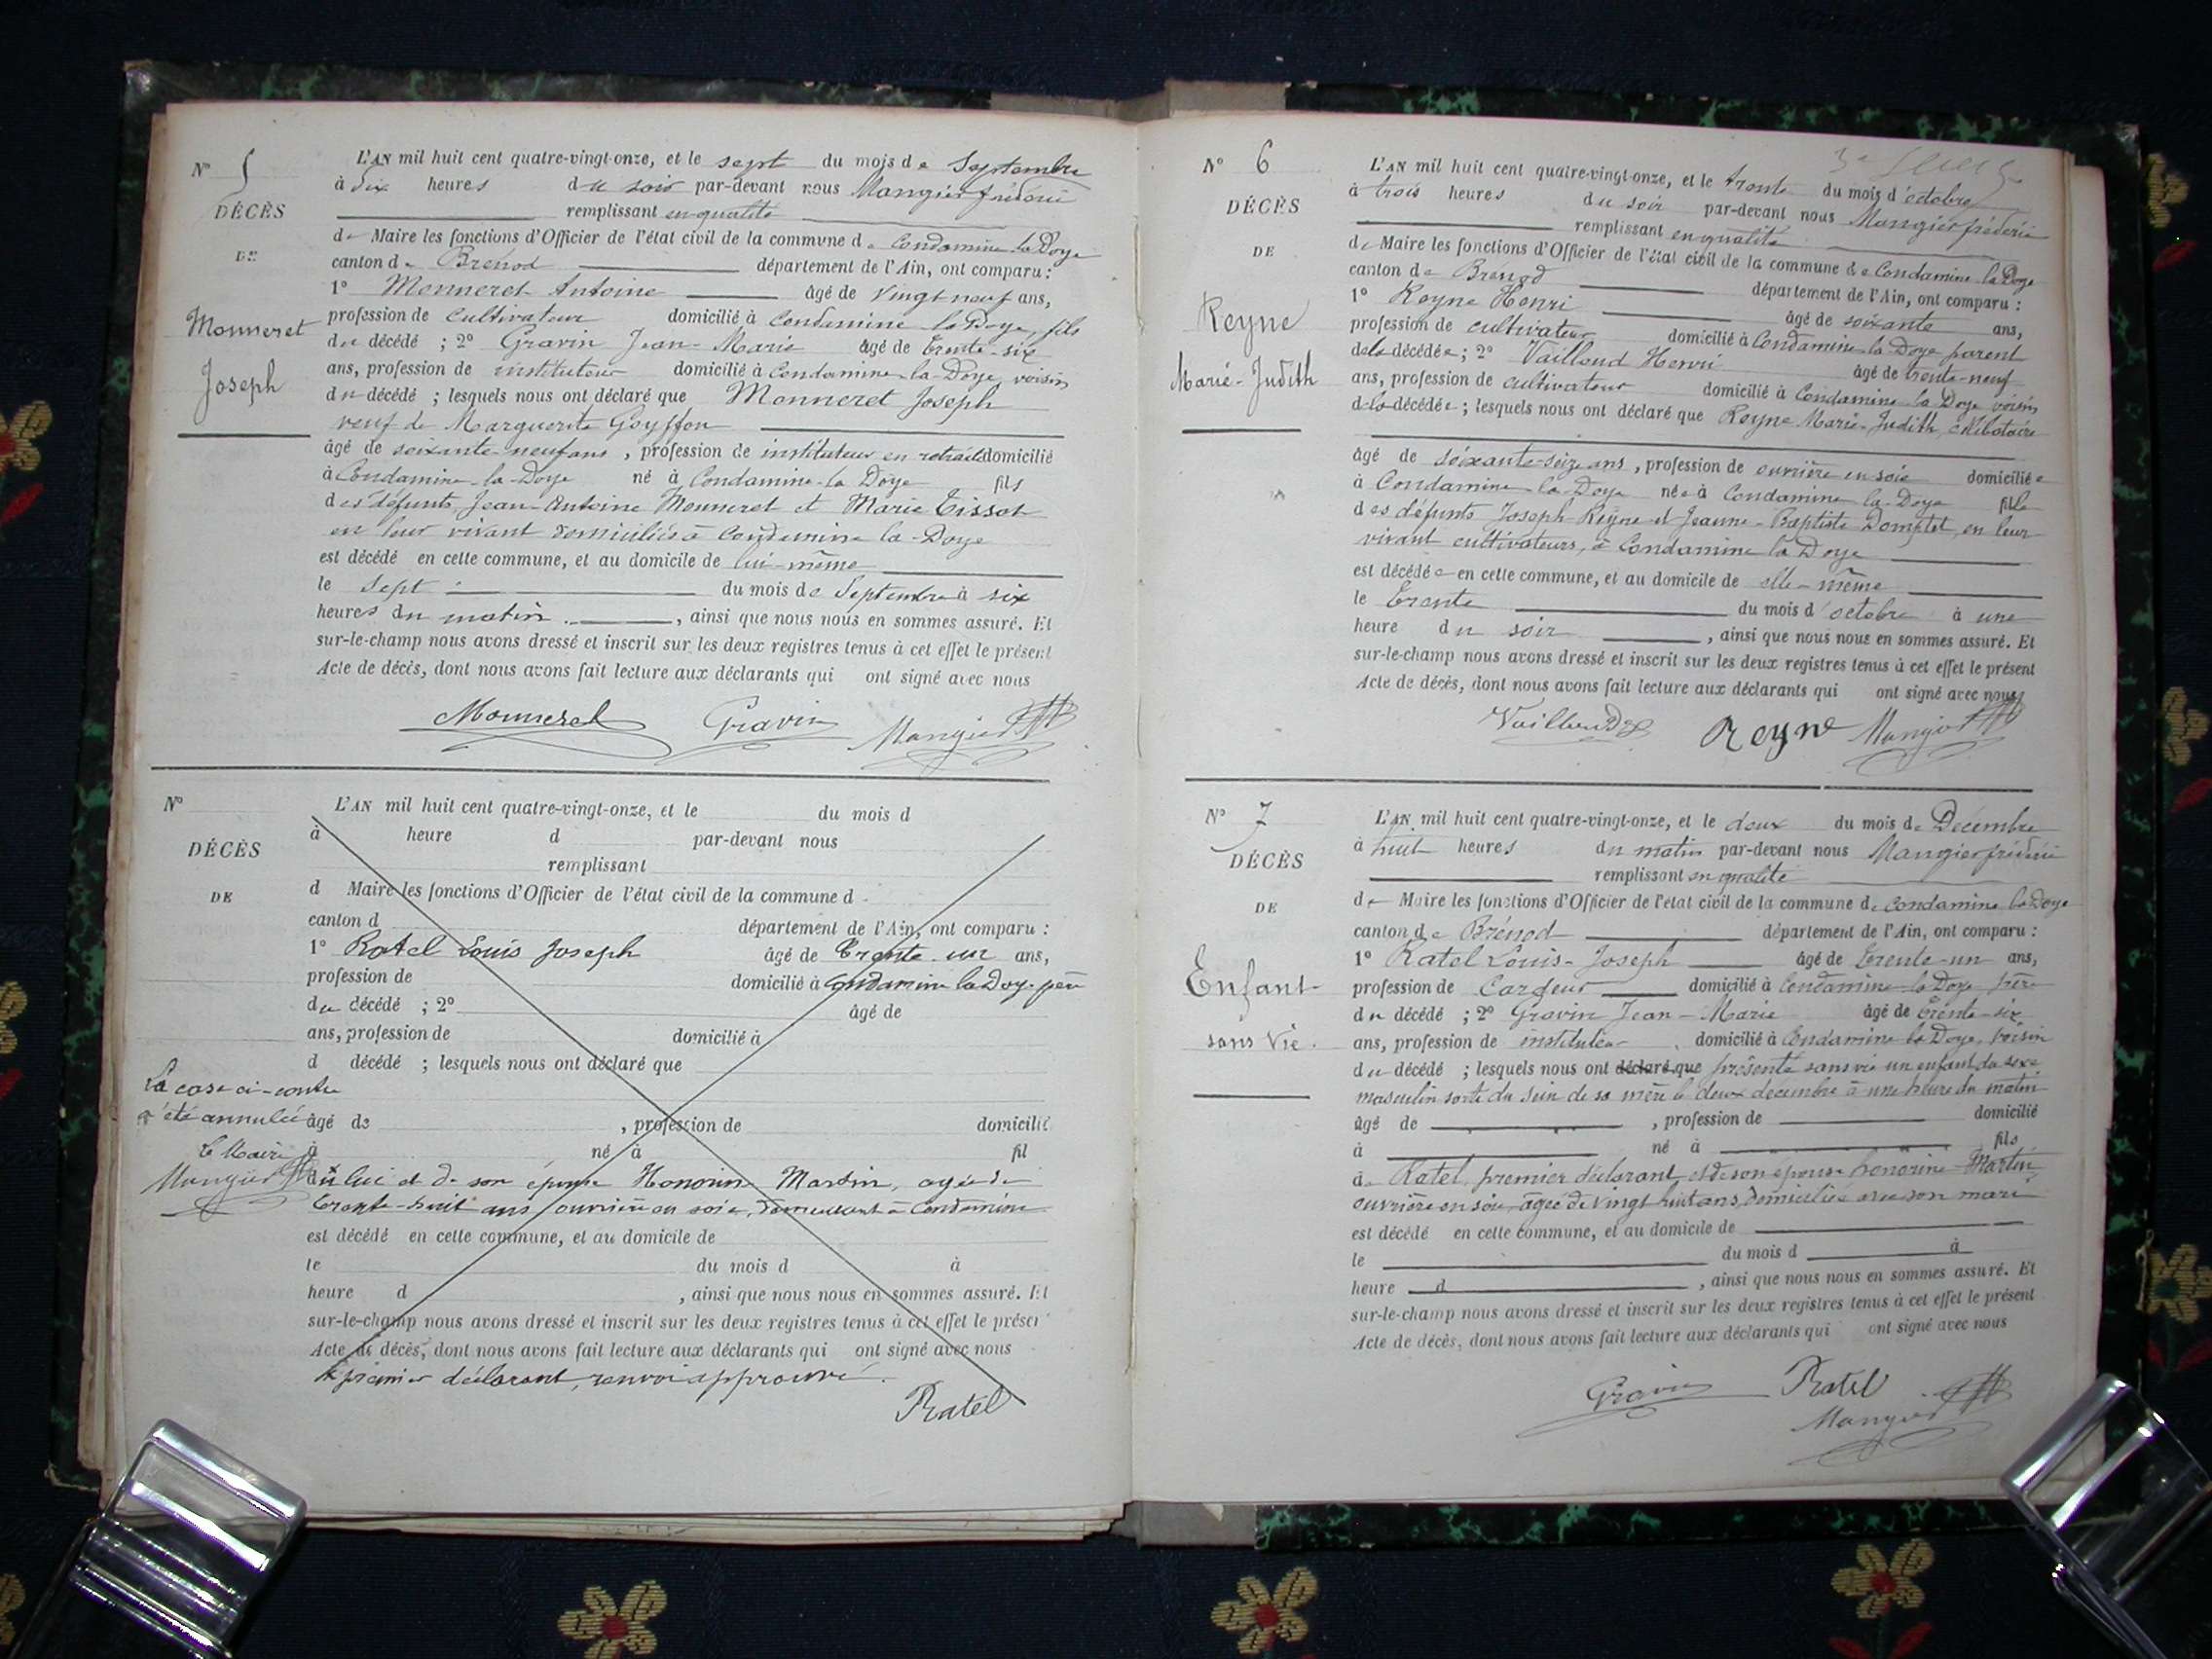 N° 5
DÉCÈS
DE
Monneret
Joseph
L'AN mil huit cent quatre-vingt-onze, et le sept du mois de Septembre
à six heures du soir par-devant nous Mangier frédéric
remplissant en qualité
de Maire les fonctions d'Officier de l'état civil de la commune de Condamine la Doye
canton de Brénod département de l'Ain, ont comparu :
1° Monneret Antoine âgé de vingt neuf ans,
profession de cultivateur domicilié à Condamine la Doye, fils
du décédé ; 2° Gravin Jean-Marie âgé de trente-six
ans, profession de instituteur domicilié à Condamine la Doye voisin
du décédé ; lesquels nous ont déclaré que Monneret Joseph
veuf de Marguerite Goyffon
âgé de soixante-neuf ans, profession de instituteur en retraite domicilié
à Condamine-la-Doye né à Condamine-la Doye fils
des défunts Jean-Antoine Monneret et Marie Tissot
en leur vivant domiciliés à Condamine la-Doye
est décédé en cette commune, et au domicile de lui-même
le sept du mois de Septembre à six
heures du matin, ainsi que nous nous en sommes assuré. Et
sur-le-champ nous avons dressé et inscrit sur les deux registres tenus à cet effet le présent
Acte de décès, dont nous avons fait lecture aux déclarants qui ont signé avec nous
Monneret Gravin Mangier
N°
DÉCÈS
DE
La case ci-contre
a été annulée
Le Maire
Mangier
L'AN mil huit cent quatre-vingt-onze, et le du mois d
à heure d par-devant nous
remplissant
d Maire les fonctions d'Officier de l'état civil de la commune d
canton d département de l'Ain, ont comparu :
1° Ratel Louis Joseph âgé de trente-un ans,
profession de domicilié à Condamine la Doye père
du décédé ; 2° âgé de
ans, profession de domicilié à
d décédé ; lesquels nous ont déclaré que
âgé de , profession de domicilié
à né à fil
de lui et de son épouse Honorine Martin, agée de
trente-huit ans ouvrière en soie, demeurant à Condamine
est décédé en cette commune, et au domicile de
le du mois d à
heure d , ainsi que nous nous en sommes assuré. Et
sur-le-champ nous avons dressé et inscrit sur les deux registres tenus à cet effet le présen
Acte de décès, dont nous avons fait lecture aux déclarants qui ont signé avec nous
le premier déclarant, renvoi approuvé.
Ratel
N° 6
DÉCÈS
DE
Reyne
Marie-Judith
L'AN mil huit cent quatre-vingt-onze, et le trente du mois d'octobre
à trois heures du soir par-devant nous Mangier frédéric
remplissant en qualité
de Maire les fonctions d'Officier de l'état civil de la commune de Condamine la Doye
canton de Brénod département de l'Ain, ont comparu :
1° Reyne Henri âgé de soixante ans,
profession de cultivateur domicilié à Condamine la Doye parent
de la décédée ; 2° Vailloud Henri âgé de trente-neuf
ans, profession de cultivateur domicilié à Condamine la Doye voisin
de la décédée ; lesquels nous ont déclaré que Reyne Marie-Judith, célibataire
âgé de soixante-seize ans, profession de ouvrière en soie domiciliée
à Condamine la-Doye née à Condamine la-Doye fille
des défunts Joseph Reyne et Jeanne-Baptiste Domptet, en leur
vivant cultivateurs, à Condamine la Doye
est décédée en cette commune, et au domicile de elle-même
le trente du mois d'octobre à une
heure du soir, ainsi que nous nous en sommes assuré. Et
sur-le-champ nous avons dressé et inscrit sur les deux registres tenus à cet effet le présent
Acte de décès, dont nous avons fait lecture aux déclarants qui ont signé avec nous
Vailloud Reyne Mangier
N° 7
DÉCÈS
DE
Enfant
sans vie.
L'AN mil huit cent quatre-vingt-onze, et le deux du mois de Décembre
à huit heures du matin par-devant nous Mangier frédéric
remplissant en qualité
de Maire les fonctions d'Officier de l'état civil de la commune de Condamine la Doye
canton de Brénod département de l'Ain, ont comparu :
1° Ratel Louis-Joseph âgé de trente-un ans,
profession de Cardeur domicilié à Condamine la Doye père
du décédé ; 2° Gravin Jean-Marie âgé de trente-six
ans, profession de instituteur domicilié à Condamine la Doye, voisin
du décédé ; lesquels nous ont déclaré que présenté sans vie un enfant du sexe
masculin sorti du sein de sa mère le deux décembre à une heure du matin
âgé de , profession de domicilié
à né à fils
de Ratel, premier déclarant et de son épouse honorine Martin,
ouvrière en soie, âgée de vingt huit ans, domiciliée avec son mari
est décédé en cette commune, et au domicile de
le du mois d à
heure d , ainsi que nous nous en sommes assuré. Et
sur-le-champ nous avons dressé et inscrit sur les deux registres tenus à cet effet le présent
Acte de décès, dont nous avons fait lecture aux déclarants qui ont signé avec nous
Gravin Ratel
Mangier